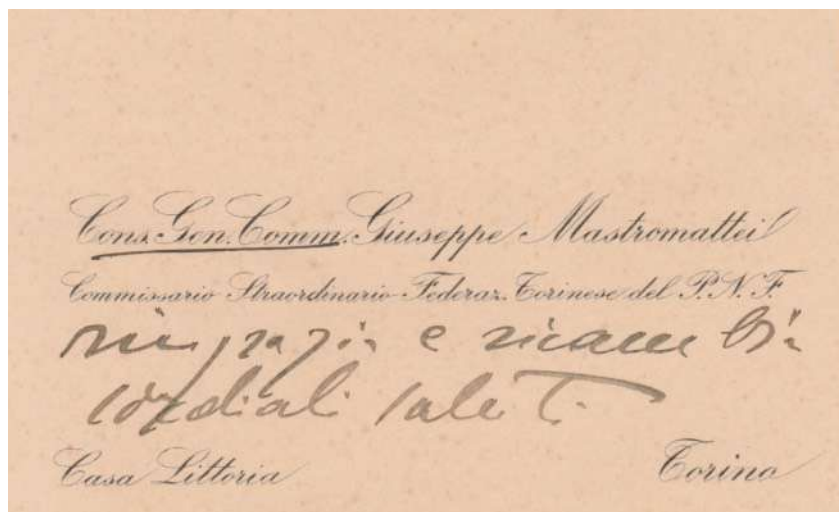 Cons. Gen. Comm. Giuseppe Mastromattei
Commissario Straordinario Federaz. Torinese del P. N. F.
ringrazia e ricambia
cordiali saluti.
Casa Littoria
Torino